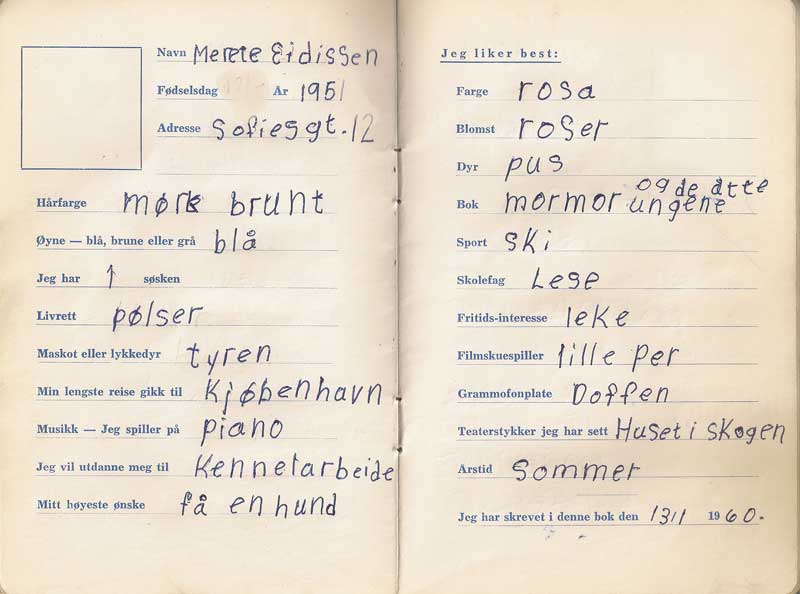 Navn Merete Eidissen
Fødselsdag År 1951
Adresse Sofiesgt. 12
Hårfarge mørk brunt
Øyne — blå, brune eller grå blå
Jeg har 1 søsken
Livrett pølser
Maskot eller lykkedyr tyren
Min lengste reise gikk til Kjøbenhavn
Musikk — Jeg spiller på piano
Jeg vil utdanne meg til Kennelarbeide
Mitt høyeste ønske få en hund
Jeg liker best:
Farge rosa
Blomst roser
Dyr pus
Bok mormor og de åtte ungene
Sport ski
Skolefag Lese
Fritids-interesse leke
Filmskuespiller lille per
Grammofonplate Doffen
Teaterstykker jeg har sett Huset i skogen
Årstid Sommer
Jeg har skrevet i denne bok den 1960.